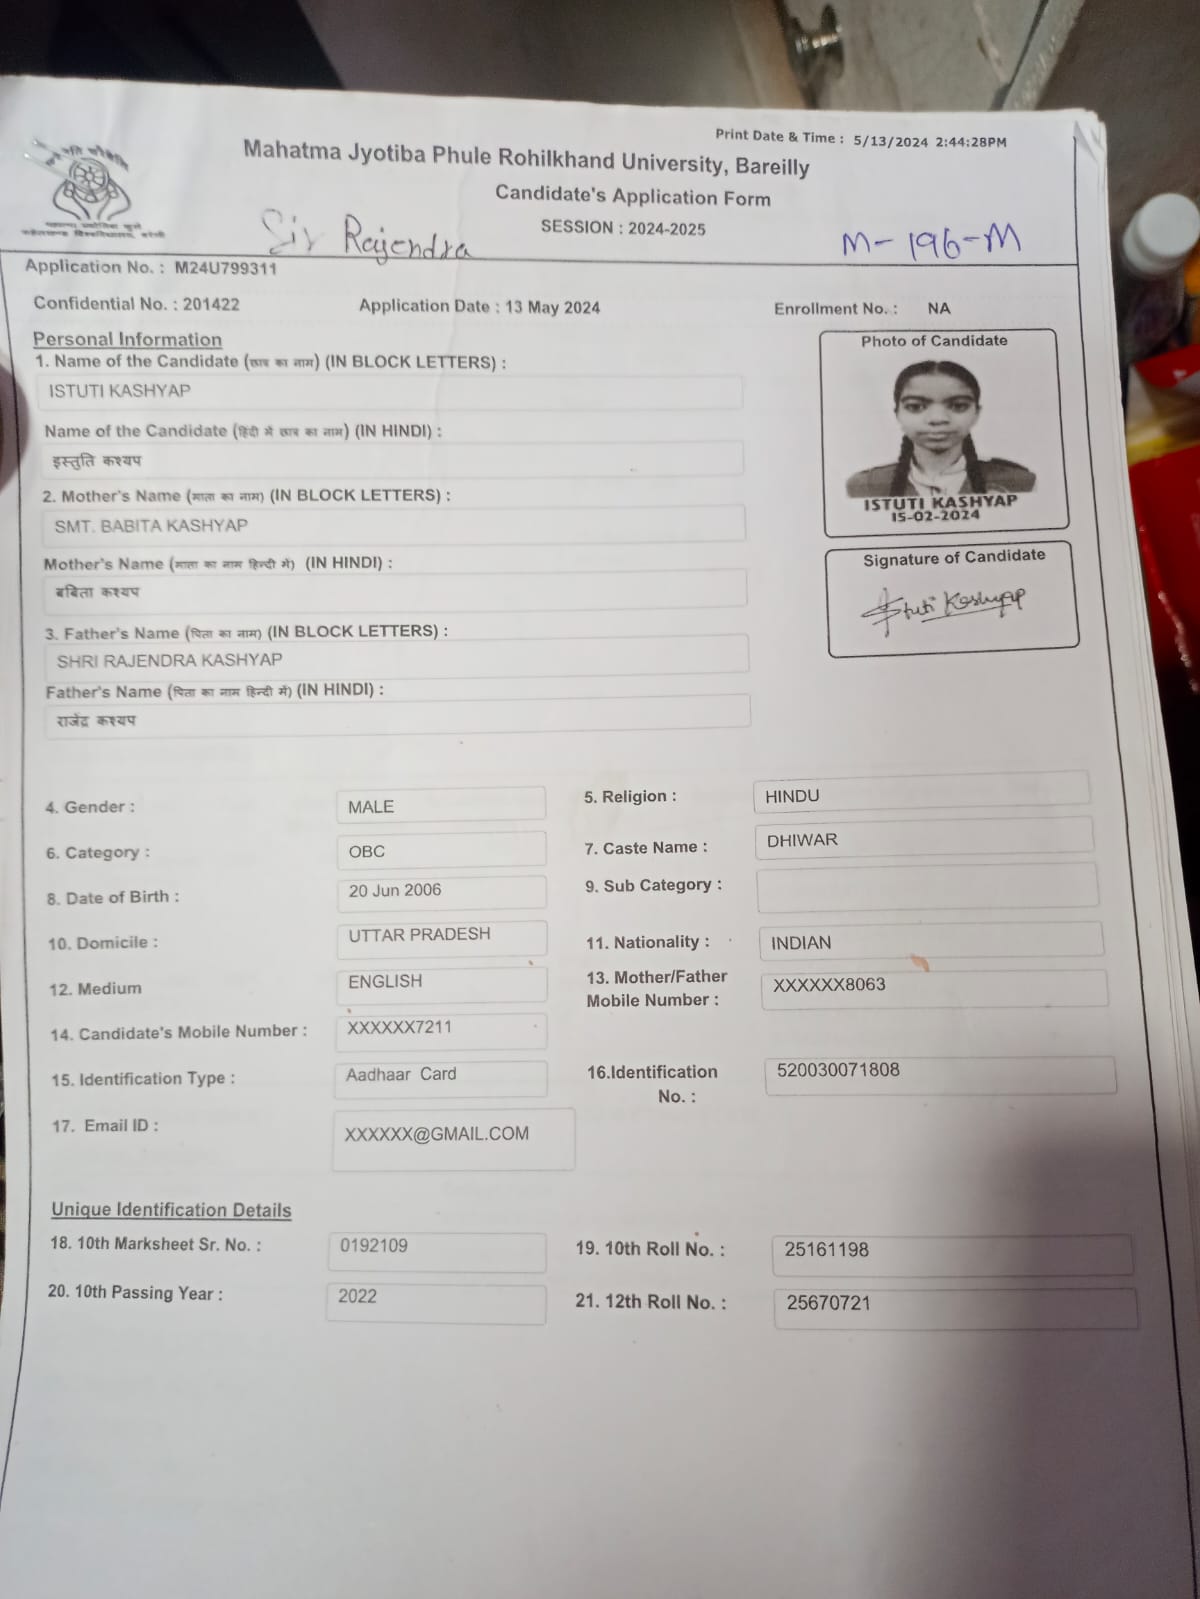 Print Date & Time : 5/13/2024 2:44:28PM
Mahatma Jyotiba Phule Rohilkhand University, Bareilly
Candidate's Application Form
SESSION : 2024-2025
Sir Rajendra
M-196-M
Application No. : M24U799311
Confidential No. : 201422 Application Date : 13 May 2024 Enrollment No. : NA
Personal Information
1. Name of the Candidate (छात्र का नाम) (IN BLOCK LETTERS) :
ISTUTI KASHYAP
Name of the Candidate (हिंदी में छात्र का नाम) (IN HINDI) :
इस्तुति कश्यप
2. Mother's Name (माता का नाम) (IN BLOCK LETTERS) :
SMT. BABITA KASHYAP
Mother's Name (माता का नाम हिन्दी में) (IN HINDI) :
बबिता कश्यप
3. Father's Name (पिता का नाम) (IN BLOCK LETTERS) :
SHRI RAJENDRA KASHYAP
Father's Name (पिता का नाम हिन्दी में) (IN HINDI) :
राजेंद्र कश्यप
Photo of Candidate
ISTUTI KASHYAP
15-02-2024
Signature of Candidate
Istuti Kashyap
4. Gender : MALE 5. Religion : HINDU
6. Category : OBC 7. Caste Name : DHIWAR
8. Date of Birth : 20 Jun 2006 9. Sub Category :
10. Domicile : UTTAR PRADESH 11. Nationality : INDIAN
12. Medium ENGLISH 13. Mother/Father
Mobile Number : XXXXXX8063
14. Candidate's Mobile Number : XXXXXX7211
15. Identification Type : Aadhaar Card 16.Identification
No. : 520030071808
17. Email ID : XXXXXX@GMAIL.COM
Unique Identification Details
18. 10th Marksheet Sr. No. : 0192109 19. 10th Roll No. : 25161198
20. 10th Passing Year : 2022 21. 12th Roll No. : 25670721